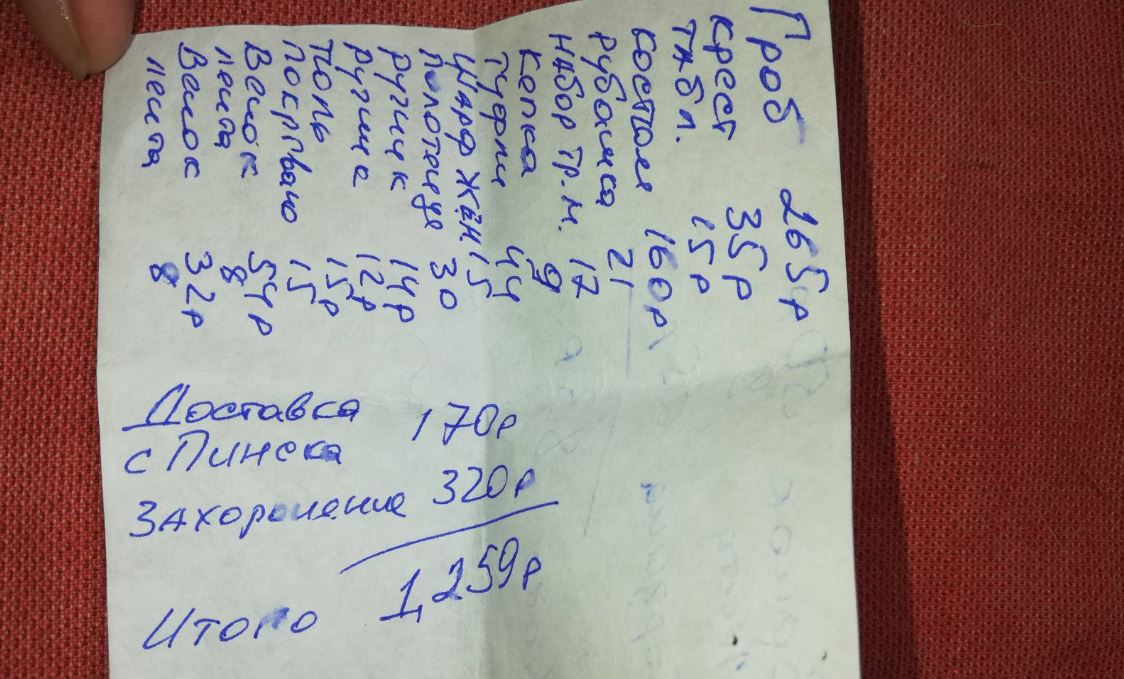 Гроб 265р
Крест 35р
Табл. 15р
Костюм 160р
Рубашка 21
Набор тр.м. 17
Кепка 9
Туфли 44
Шарф жен. 15
Полотенце 30
Ручник 14р
12р
Тюль 15р
Покрывало 15
Венок 54р
лента 8
Венок 32р
лента 8
Доставка
с Пинска 170р
Захоронение 320р
Итого 1,259р